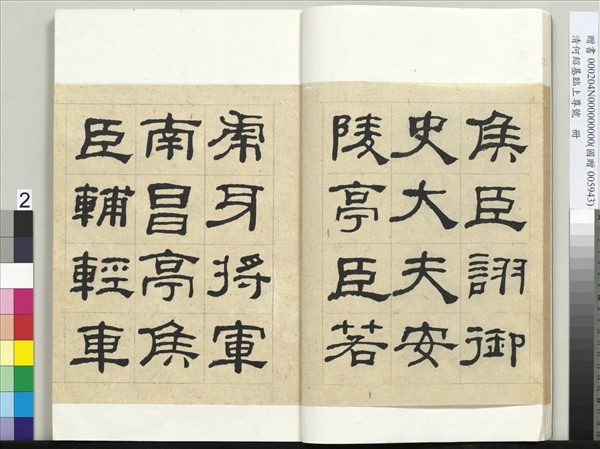 侯臣詡御
史大夫安
陵亭臣若
虎牙將軍
南昌亭侯
臣輔輕車
贈書 000204N000000000(國贈 005943)
清何紹基臨上尊號 冊
2